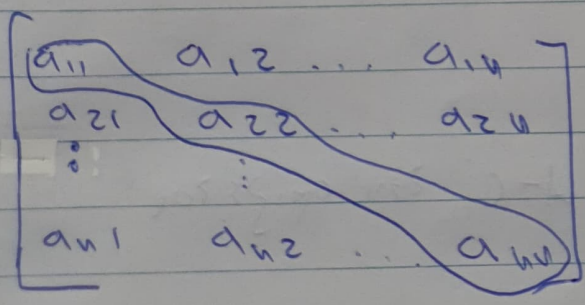 a11 a12 ... a1n
a21 a22 ... a2n
⋮ ⋮
an1 an2 ... ann